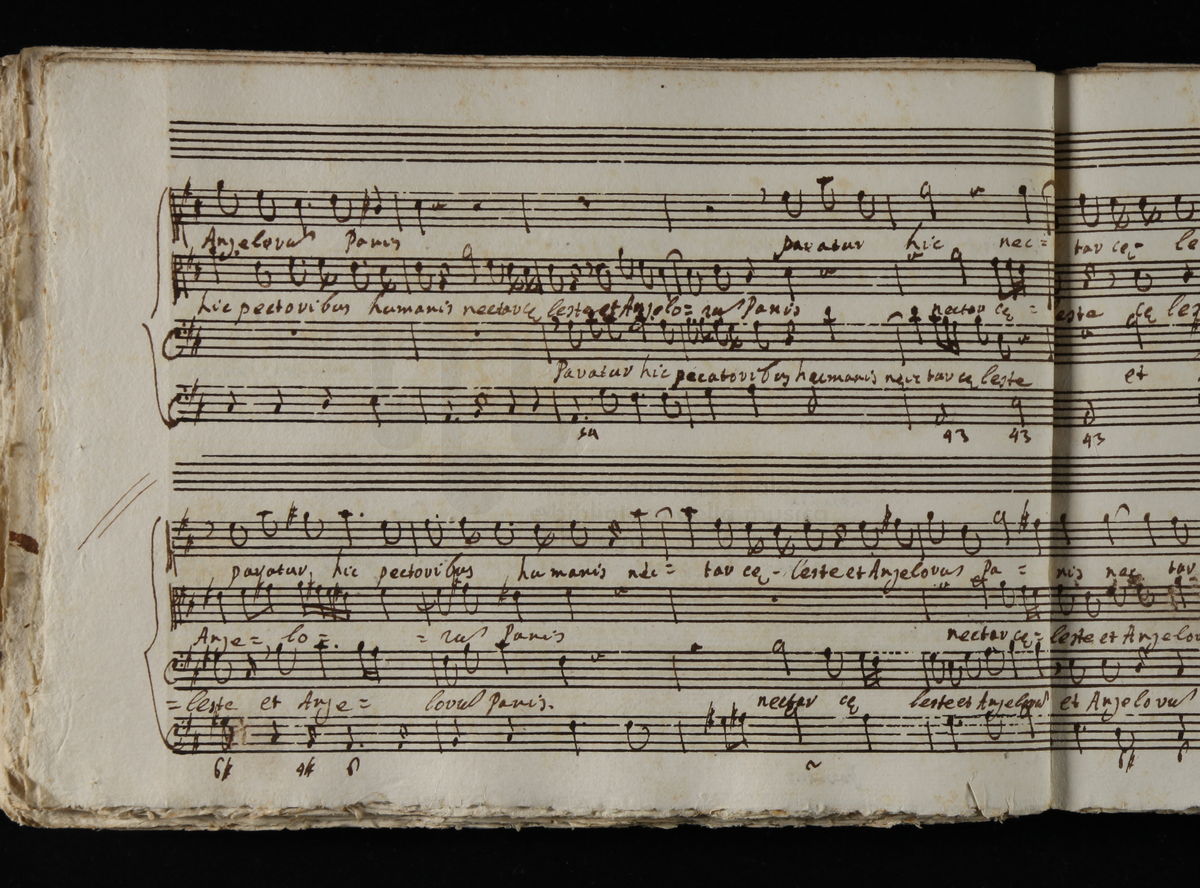 Angelorum Panis paratur hic nec= tar cę- le
hic pectoribus humanis nectar cę leste et Angelo= rum Panis nectar cę = leste cę les
Paratur hic pecatoribus humanis nectar cę leste et
43 43 43
paratur hic pectoribus humanis nec= tar cę- leste et Angelorum Pa = nis nec tar
Ange= lo= = rum Panis nectar cę= leste et Angelo
=leste et Ange= lorum Panis. nectar cę leste et Angelorum et Angelorum
6# 4# 6 6# 6